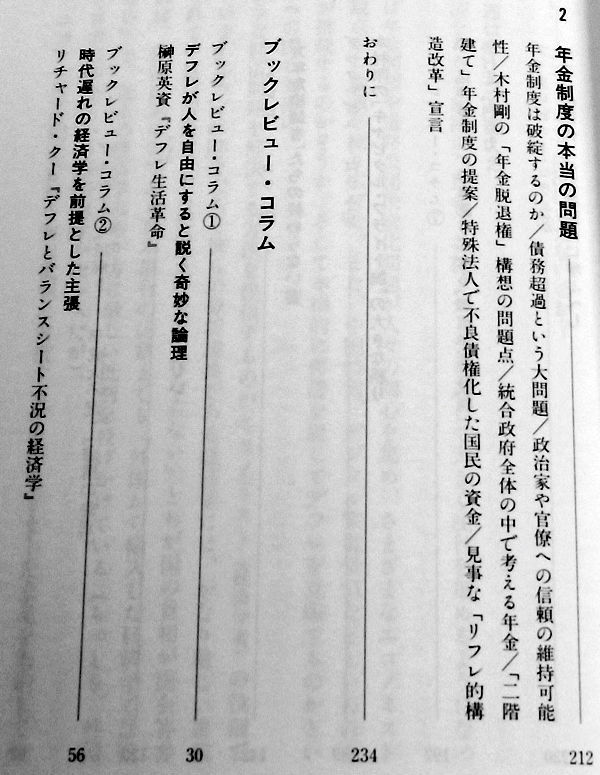 2 年金制度の本当の問題 212
年金制度は破綻するのか/債務超過という大問題/政治家や官僚への信頼の維持可能
性/木村剛の「年金脱退権」構想の問題点/統合政府全体の中で考える年金/「二階
建て」年金制度の提案/特殊法人で不良債権化した国民の資金/見事な「リフレ的構
造改革」宣言
おわりに 234
ブックレビュー・コラム
ブックレビュー・コラム① 30
デフレが人を自由にすると説く奇妙な論理
榊原英資『デフレ生活革命』
ブックレビュー・コラム② 56
時代遅れの経済学を前提とした主張
リチャード・クー『デフレとバランスシート不況の経済学』